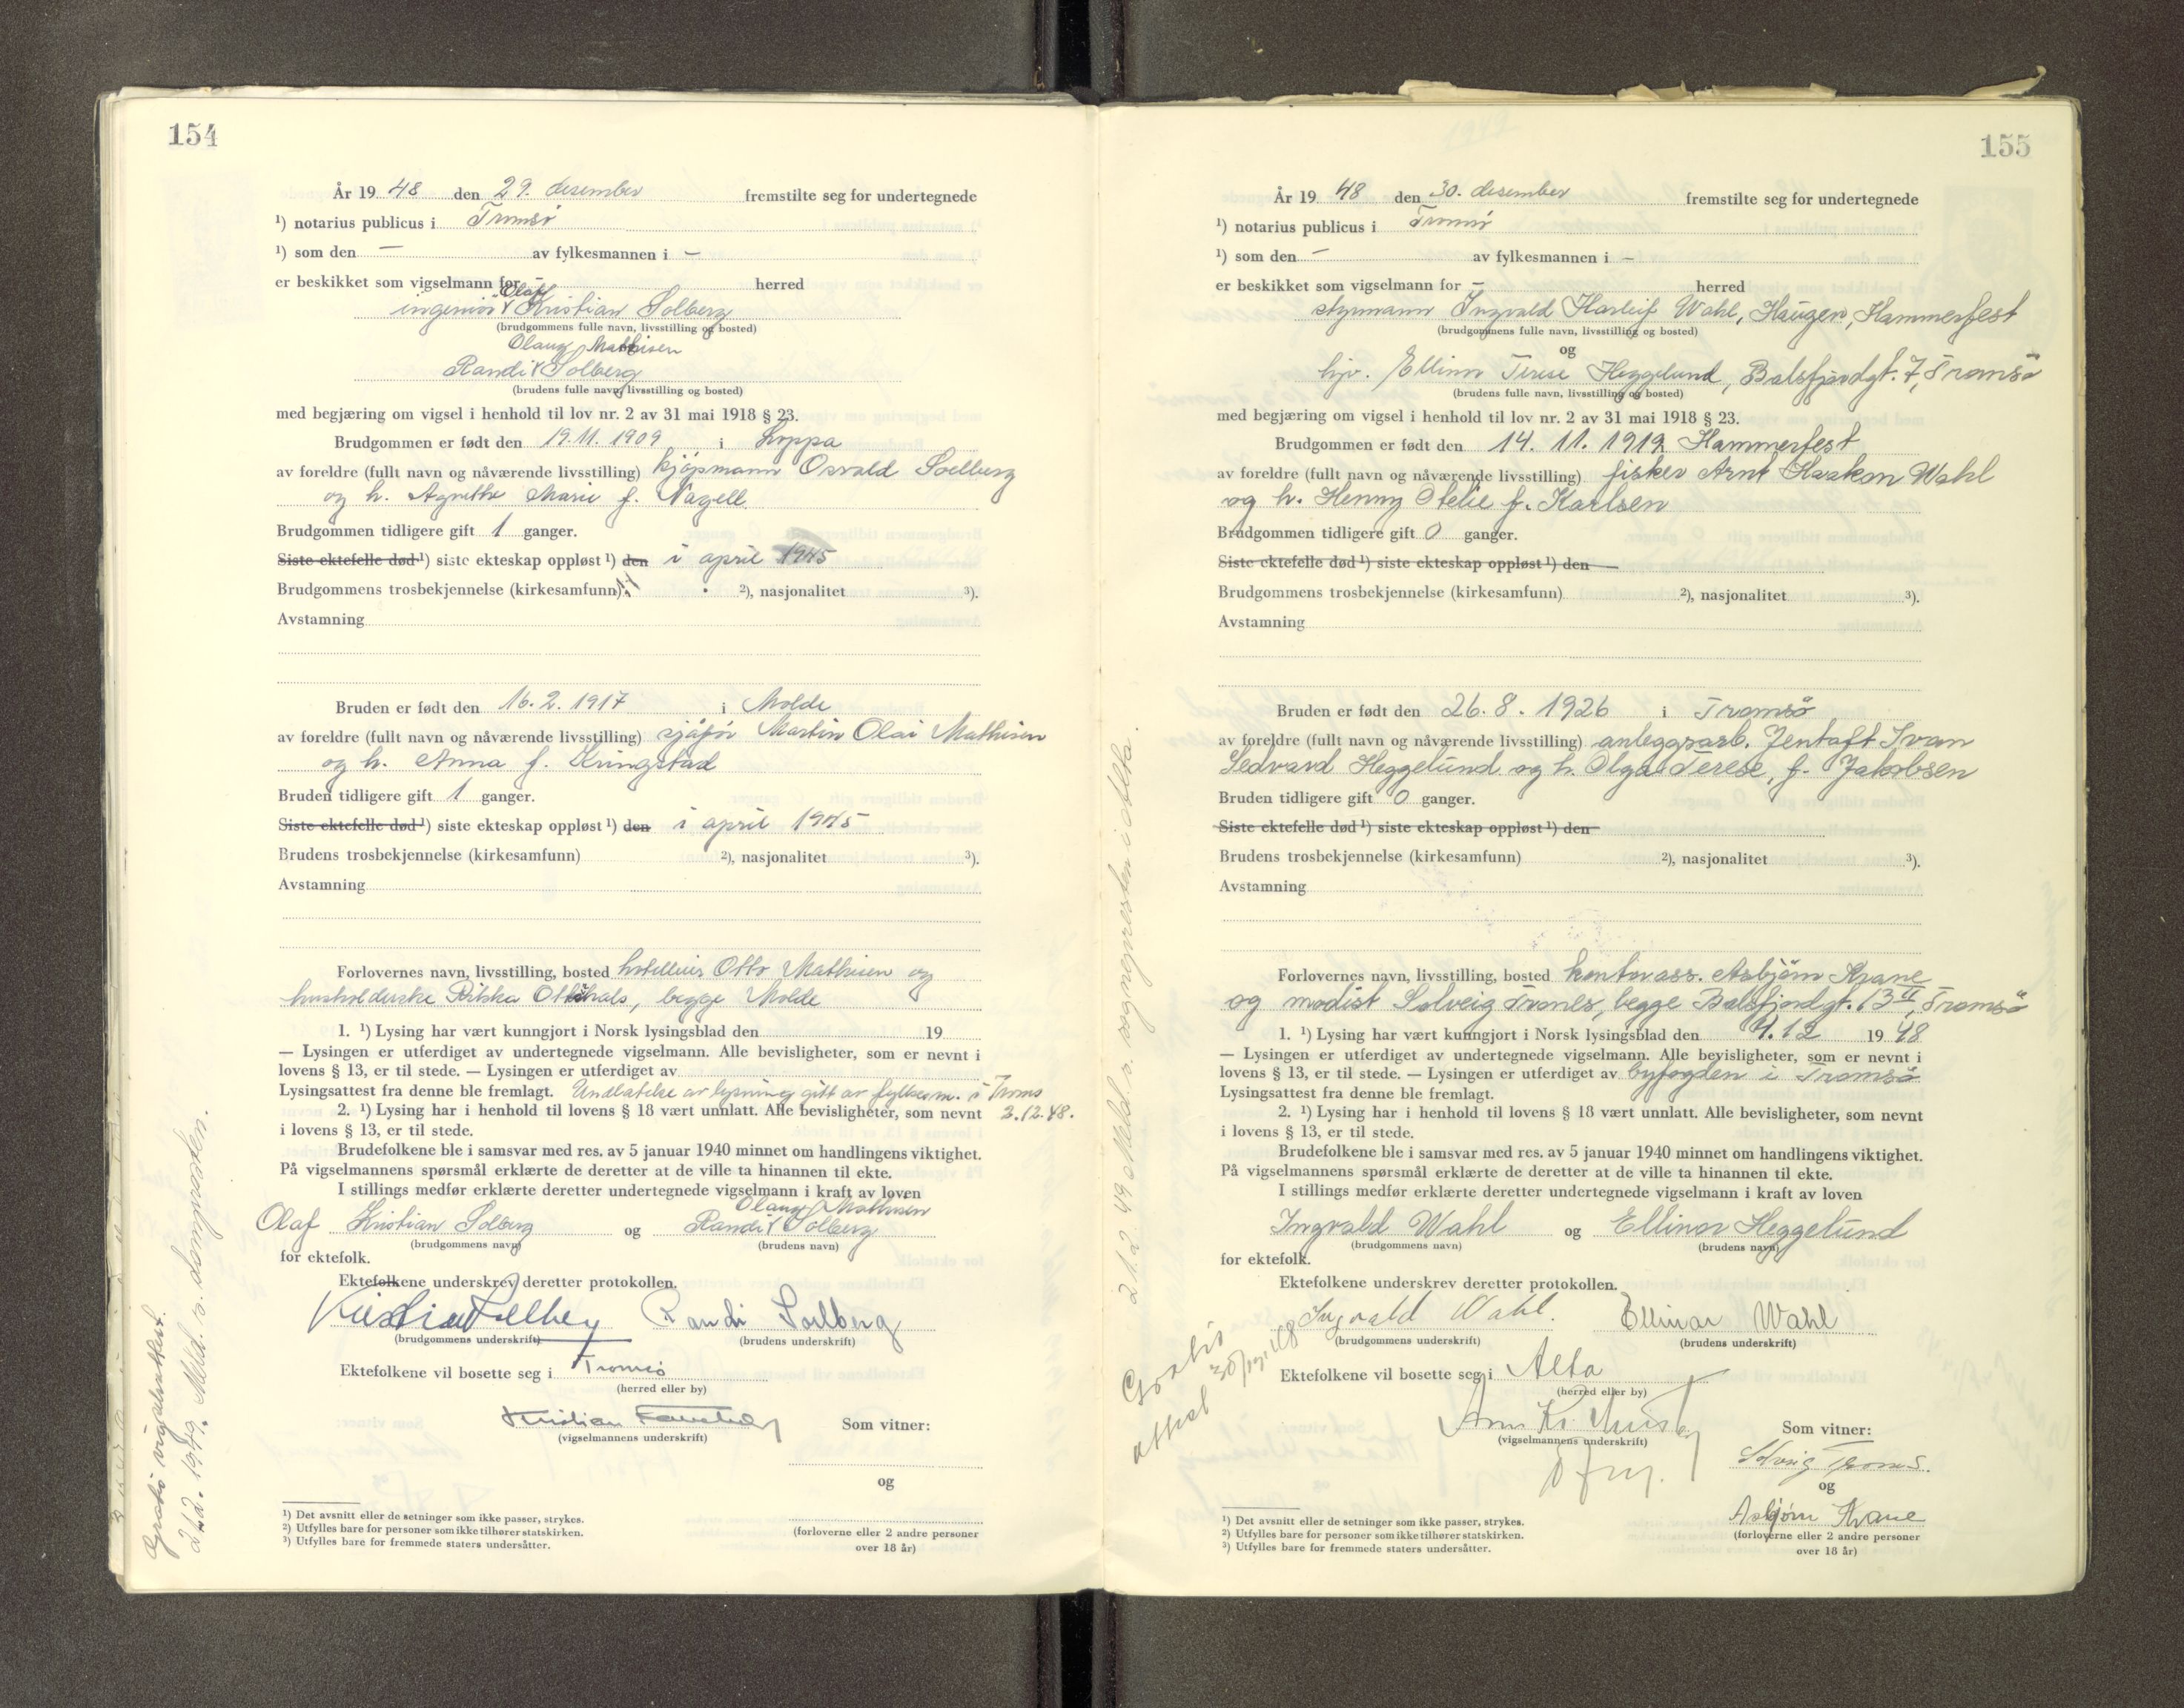 154
År 19 48 den 29. desember fremstilte seg for undertegnede
¹) notarius publicus i Tromsø
¹) som den — av fylkesmannen i —
er beskikket som vigselmann for — herred
Olaf
ingeniør Kristian Solberg
(brudgommens fulle navn, livsstilling og bosted)
Olaug Mathisen
Randi Solberg
(brudens fulle navn, livsstilling og bosted)
med begjæring om vigsel i henhold til lov nr. 2 av 31 mai 1918 § 23.
Brudgommen er født den 19.11.1909 i Loppa
av foreldre (fullt navn og nåværende livsstilling) kjøpmann Osvald Soelberg
og h. Agnethe Marie f. Nagell
Brudgommen tidligere gift 1 ganger.
Siste ektefelle død ¹) siste ekteskap oppløst ¹) den i april 1945
Brudgommens trosbekjennelse (kirkesamfunn) ²), nasjonalitet ³).
Avstamning
Bruden er født den 16.2.1917 i Molde
av foreldre (fullt navn og nåværende livsstilling) sjåfør Martin Olai Mathisen
og h. Anna f. Kringstad
Bruden tidligere gift 1 ganger.
Siste ektefelle død ¹) siste ekteskap oppløst ¹) den i april 1945
Brudens trosbekjennelse (kirkesamfunn) ²), nasjonalitet ³).
Avstamning
Forlovernes navn, livsstilling, bosted hotelleier Otto Mathisen og
husholderske begge Molde
1. ¹) Lysing har vært kunngjort i Norsk lysingsblad den 19
— Lysingen er utferdiget av undertegnede vigselmann. Alle bevisligheter, som er nevnt i
lovens § 13, er til stede. — Lysingen er utferdiget av
Lysingsattest fra denne ble fremlagt. Undlatelse av lysning gitt av fylkesm. i Troms
2. ¹) Lysing har i henhold til lovens § 18 vært unnlatt. Alle bevisligheter, som nevnt 2.12.48.
i lovens § 13, er til stede.
Brudefolkene ble i samsvar med res. av 5 januar 1940 minnet om handlingens viktighet.
På vigselmannens spørsmål erklærte de deretter at de ville ta hinannen til ekte.
I stillings medfør erklærte deretter undertegnede vigselmann i kraft av loven
Olaug Mathisen
Olaf Kristian Solberg og Randi Solberg
(brudgommens navn) (brudens navn)
for ektefolk.
Ektefolkene underskrev deretter protokollen.
Kristian Soelberg Randi Soelberg
(brudgommens underskrift) (brudens underskrift)
Ektefolkene vil bosette seg i Tromsø
(herred eller by)
Kristian
(vigselmannens underskrift)
Som vitner:
og
(forloverne eller 2 andre personer
over 18 år)
¹) Det avsnitt eller de setninger som ikke passer, strykes.
²) Utfylles bare for personer som ikke tilhører statskirken.
³) Utfylles bare for fremmede staters undersåtter.
Gratis vigselsattest.
21.2.1949. Meld. s. domprosten.
155
1949
År 19 48 den 30. desember fremstilte seg for undertegnede
¹) notarius publicus i Tromsø
¹) som den — av fylkesmannen i —
er beskikket som vigselmann for — herred
styrmann Ingvald Harleif Wahl, Haugen, Hammerfest
(brudgommens fulle navn, livsstilling og bosted)
og
hjv. Ellinor Terese Heggelund, Balsfjordgt. 7, Tromsø
(brudens fulle navn, livsstilling og bosted)
med begjæring om vigsel i henhold til lov nr. 2 av 31 mai 1918 § 23.
Brudgommen er født den 14. 11. 1919 Hammerfest
av foreldre (fullt navn og nåværende livsstilling) fisker Arnt Haakon Wahl
og h. Henny Otelie f. Karlsen
Brudgommen tidligere gift 0 ganger.
Siste ektefelle død ¹) siste ekteskap oppløst ¹) den —
Brudgommens trosbekjennelse (kirkesamfunn) ²), nasjonalitet ³).
Avstamning
Bruden er født den 26. 8. 1926 i Tromsø
av foreldre (fullt navn og nåværende livsstilling) anleggsarb. Jentoft Ivan
Sedvard Heggelund og h. Olga Terese, f. Jakobsen
Bruden tidligere gift 0 ganger.
Siste ektefelle død ¹) siste ekteskap oppløst ¹) den
Brudens trosbekjennelse (kirkesamfunn) ²), nasjonalitet ³).
Avstamning
Forlovernes navn, livsstilling, bosted kontorass. Asbjørn Krane
og modist Solveig Trones, begge Balsfjordgt. 13 II, Tromsø
1. ¹) Lysing har vært kunngjort i Norsk lysingsblad den 4.12 19 48
— Lysingen er utferdiget av undertegnede vigselmann. Alle bevisligheter, som er nevnt i
lovens § 13, er til stede. — Lysingen er utferdiget av byfogden i Tromsø
Lysingsattest fra denne ble fremlagt.
2. ¹) Lysing har i henhold til lovens § 18 vært unnlatt. Alle bevisligheter, som nevnt
i lovens § 13, er til stede.
Brudefolkene ble i samsvar med res. av 5 januar 1940 minnet om handlingens viktighet.
På vigselmannens spørsmål erklærte de deretter at de ville ta hinannen til ekte.
I stillings medfør erklærte deretter undertegnede vigselmann i kraft av loven
Ingvald Wahl og Ellinor Heggelund
(brudgommens navn) (brudens navn)
for ektefolk.
Ektefolkene underskrev deretter protokollen.
Ingvald Wahl. Ellinor Wahl
(brudgommens underskrift) (brudens underskrift)
Ektefolkene vil bosette seg i Alta
(herred eller by)
(vigselmannens underskrift)
Som vitner:
Solveig Trones.
og
Asbjørn Krane
(forloverne eller 2 andre personer
over 18 år)
¹) Det avsnitt eller de setninger som ikke passer, strykes.
²) Utfylles bare for personer som ikke tilhører statskirken.
³) Utfylles bare for fremmede staters undersåtter.
Gratis
attest 30/12-48
21.2.49 Meld. s. sognepresten i Alta.